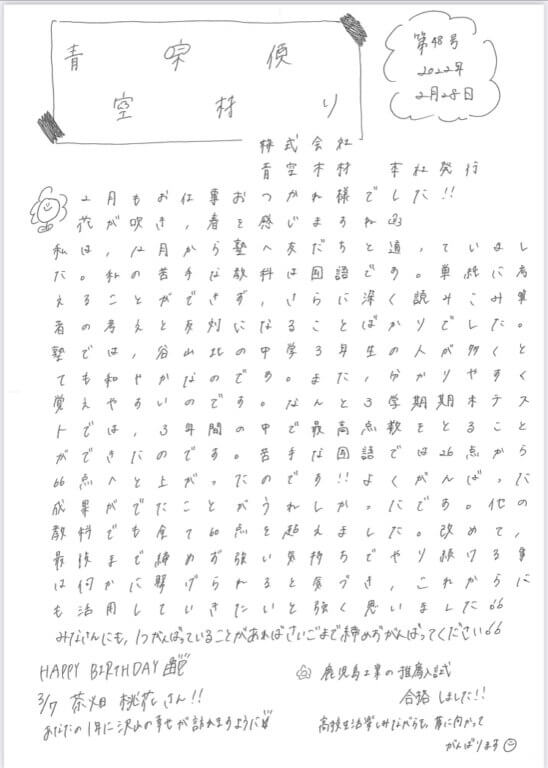 青空便り
空材
第48号
2022年
2月28日
株式会社
青空木材 本社発行
2月もお仕事おつかれ様でした!!
花が吹き,春を感じますね
私は,12月から塾へ友だちと通っていまし
た。私の苦手な教科は国語です。単純に考
えることができず,さらに深く読みこみ筆
者の考えと反対になることばかりでした。
塾では,谷山北の中学3年生の人が多くと
ても和やかなのです。また,分かりやすく
覚えやすいのです。なんと3学期期末テス
トでは,3年間の中で最高点数をとること
ができたのです。苦手な国語では26点から
66点へと上がったのです!!よくがんばった
成果がでたことがうれしかったです。他の
教科でも全て60点を超えました。改めて,
最後まで締めず強い気持ちでやり続ける事
は何かに繋げられると気づき,これからに
も活用していきたいと強く思いました
みなさんにも,1つがんばっていることがあればさいごまで締めずがんばってください
HAPPY BIRTHDAY
3/7 茶畑 桃花さん!!
あなたの1年に沢山の幸せが訪れますように
鹿児島工業の推薦入試
合格しました!!
高校生活楽しみながらも,夢に向かって
がんばります